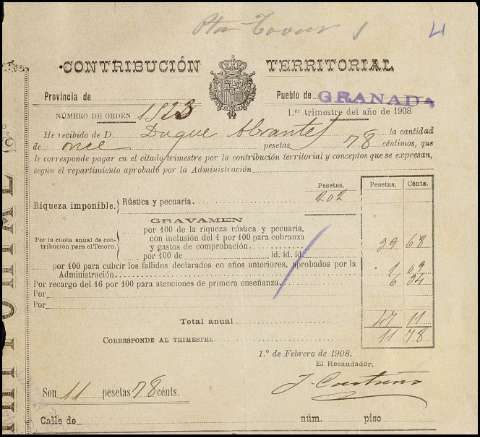 CONTRIBUCIÓN TERRITORIAL
Provincia de
Pueblo de GRANADA
NÚMERO DE ORDEN 1823
1.er trimestre del año de 1908
He recibido de D. Duque Abrantes la cantidad
de once pesetas 78 céntimos, que
le corresponde pagar en el citado trimestre por la contribución territorial y conceptos que se expresan,
según el repartimiento aprobado por la Administración.
Pesetas. Pesetas. Cénts.
Riqueza imponible. Rústica y pecuaria
GRAVAMEN
Por la cuota anual de contribución para el Tesoro.
por 100 de la riqueza rústica y pecuaria,
con inclusión del 4 por 100 para cobranza
y gastos de comprobación
por 100 de íd. íd. íd.
por 100 para cubrir los fallidos declarados en años anteriores, aprobados por la
Administración
Por recargo del 16 por 100 para atenciones de primera enseñanza
Por
Por
Total anual 47 11
CORRESPONDE AL TRIMESTRE 11 78
1.º de Febrero de 1908.
El Recaudador,
Son 11 pesetas 78 cénts.
Calle de núm. piso